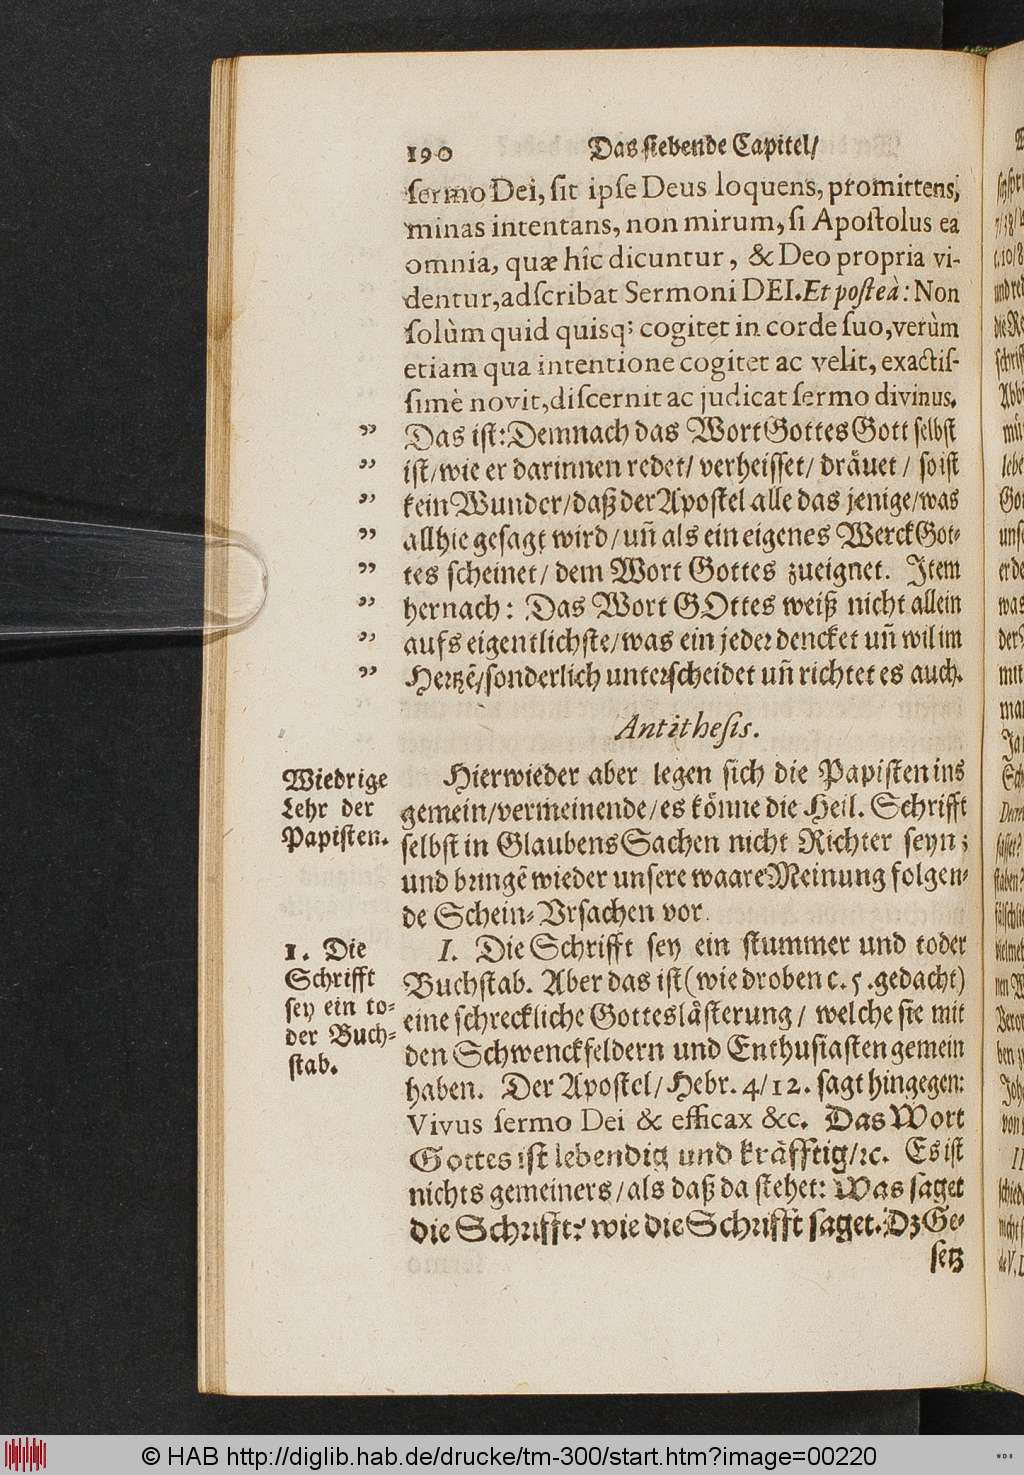 190 Das siebende Capitel/
sermo Dei, sit ipse Deus loquens, promittens,
minas intentans, non mirum, si Apostolus ea
omnia, quæ hîc dicuntur, & Deo propria vi-
dentur, adscribat Sermoni DEI. Et posteà: Non
solùm quid quisq; cogitet in corde suo, verùm
etiam qua intentione cogitet ac velit, exactis-
simè novit, discernit ac judicat sermo divinus.
” Das ist: Demnach das Wort Gottes Gott selbst
” ist/ wie er darinnen redet/ verheisset/ dräuet/ so ist
” kein Wunder/ daß der Apostel alle das jenige/ was
” allhie gesagt wird/ uñ als ein eigenes Werck Got-
” tes scheinet/ dem Wort Gottes zueignet. Item
” hernach: Das Wort GOttes weiß nicht allein
” aufs eigentlichste/ was ein jeder dencket uñ wil im
” Hertzẽ/ sonderlich unterscheidet uñ richtet es auch.
Antithesis.
Wiedrige
Lehr der
Papisten.
Hierwieder aber legen sich die Papisten ins
gemein/ vermeinende/ es könne die Heil. Schrifft
selbst in Glaubens Sachen nicht Richter seyn;
und bringẽ wieder unsere waare Meinung folgen-
de Schein-Vrsachen vor.
1. Die
Schrifft
sey ein to-
der Buch-
stab.
I. Die Schrifft sey ein stummer und toder
Buchstab. Aber das ist (wie droben c. 5. gedacht)
eine schreckliche Gotteslästerung/ welche sie mit
den Schwenckfeldern und Enthusiasten gemein
haben. Der Apostel/ Hebr. 4/ 12. sagt hingegen:
Vivus sermo Dei & efficax &c. Das Wort
Gottes ist lebendig und kräfftig/ ꝛc. Es ist
nichts gemeiners/ als daß da stehet: Was saget
die Schrifft? wie die Schrifft saget. Dz Ge-
setz
© HAB http://diglib.hab.de/drucke/tm-300/start.htm?image=00220